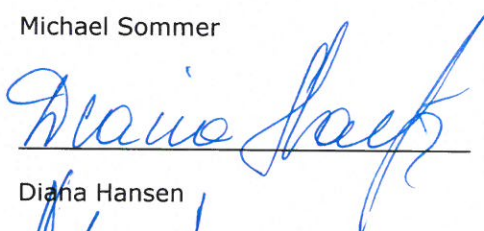 Michael Sommer
Diana
Diana Hansen